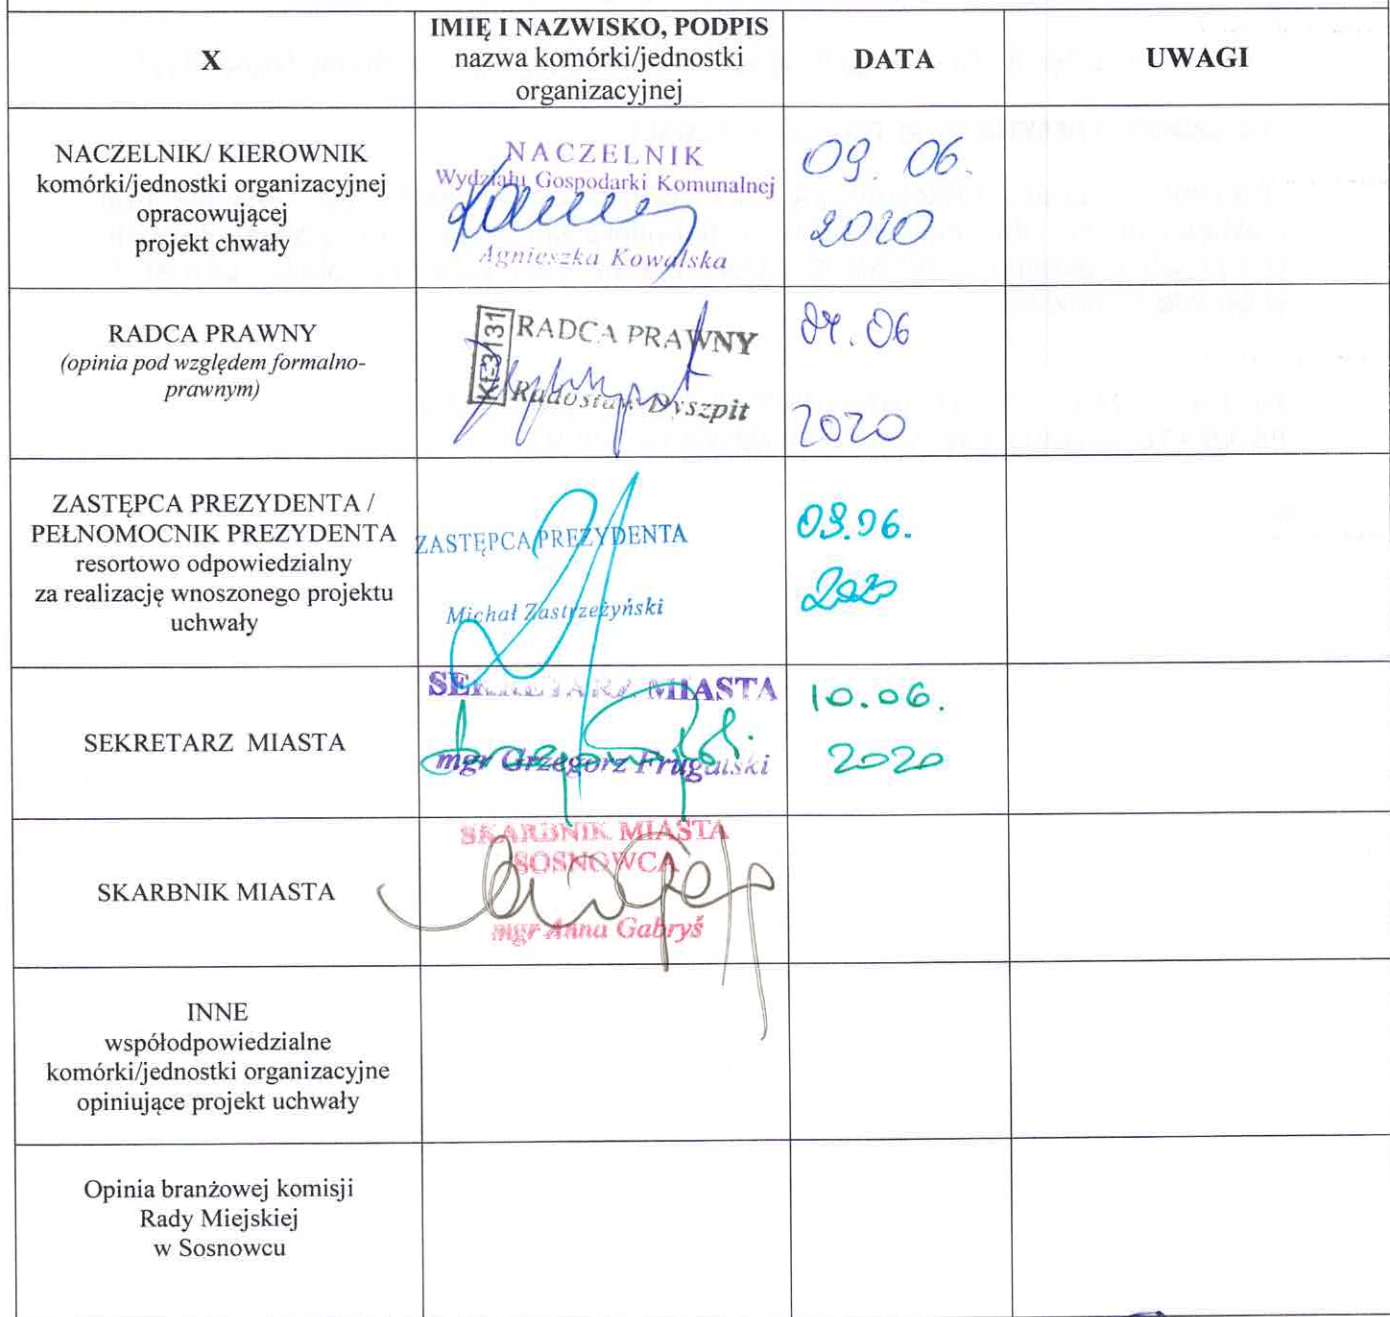 X
IMIĘ I NAZWISKO, PODPIS
nazwa komórki/jednostki
organizacyjnej
DATA
UWAGI
NACZELNIK/ KIEROWNIK
komórki/jednostki organizacyjnej
opracowującej
projekt chwały
NACZELNIK
Wydziału Gospodarki Komunalnej
Agnieszka Kowalska
09. 06.
2020
RADCA PRAWNY
(opinia pod względem formalno-
prawnym)
KE3131
RADCA PRAWNY
Radosław Dyszpit
06
2020
ZASTĘPCA PREZYDENTA /
PEŁNOMOCNIK PREZYDENTA
resortowo odpowiedzialny
za realizację wnoszonego projektu
uchwały
ZASTĘPCA PREZYDENTA
Michał Zastrzeżyński
09.06.
2020
SEKRETARZ MIASTA
SEKRETARZ MIASTA
mgr Grzegorz Frugalski
10.06.
2020
SKARBNIK MIASTA
SKARBNIK MIASTA
SOSNOWCA
mgr Anna Gabryś
INNE
współodpowiedzialne
komórki/jednostki organizacyjne
opiniujące projekt uchwały
Opinia branżowej komisji
Rady Miejskiej
w Sosnowcu